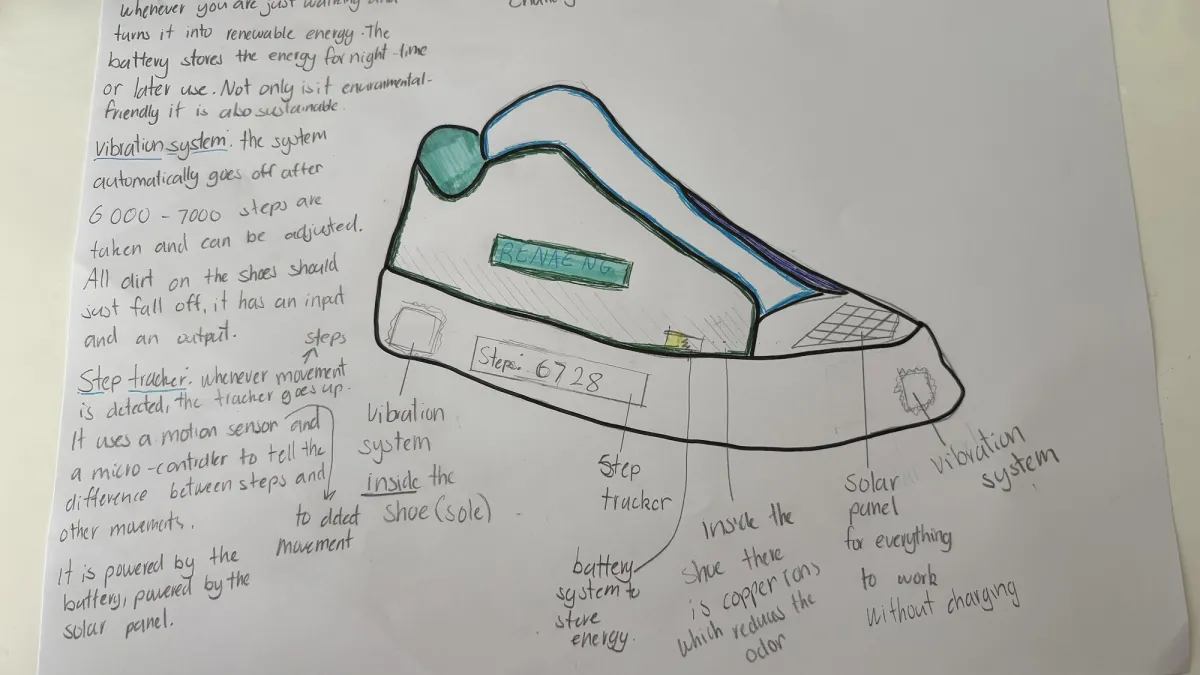 whenever you are just walking and
turns it into renewable energy. The
battery stores the energy for night-time
or later use. Not only is it environmental-
friendly it is also sustainable.
vibration system: the system
automatically goes off after
6000 - 7000 steps are
taken and can be adjusted.
All dirt on the shoes should
just fall off, it has an input
and an output.
steps
Step tracker: whenever movement
is detected, the tracker goes up.
It uses a motion sensor and
a micro-controller to tell the
difference between steps and
other movements.
to detect
movement
It is powered by the
battery, powered by the
solar panel.
RENAENG
Steps: 6728
vibration
system
inside the
shoe (sole)
Step
tracker
battery
system to
store
energy.
Inside the
shoe there
is copper ions
which reduces the
odor
Solar
panel
for everything
to work
without charging
vibration
system